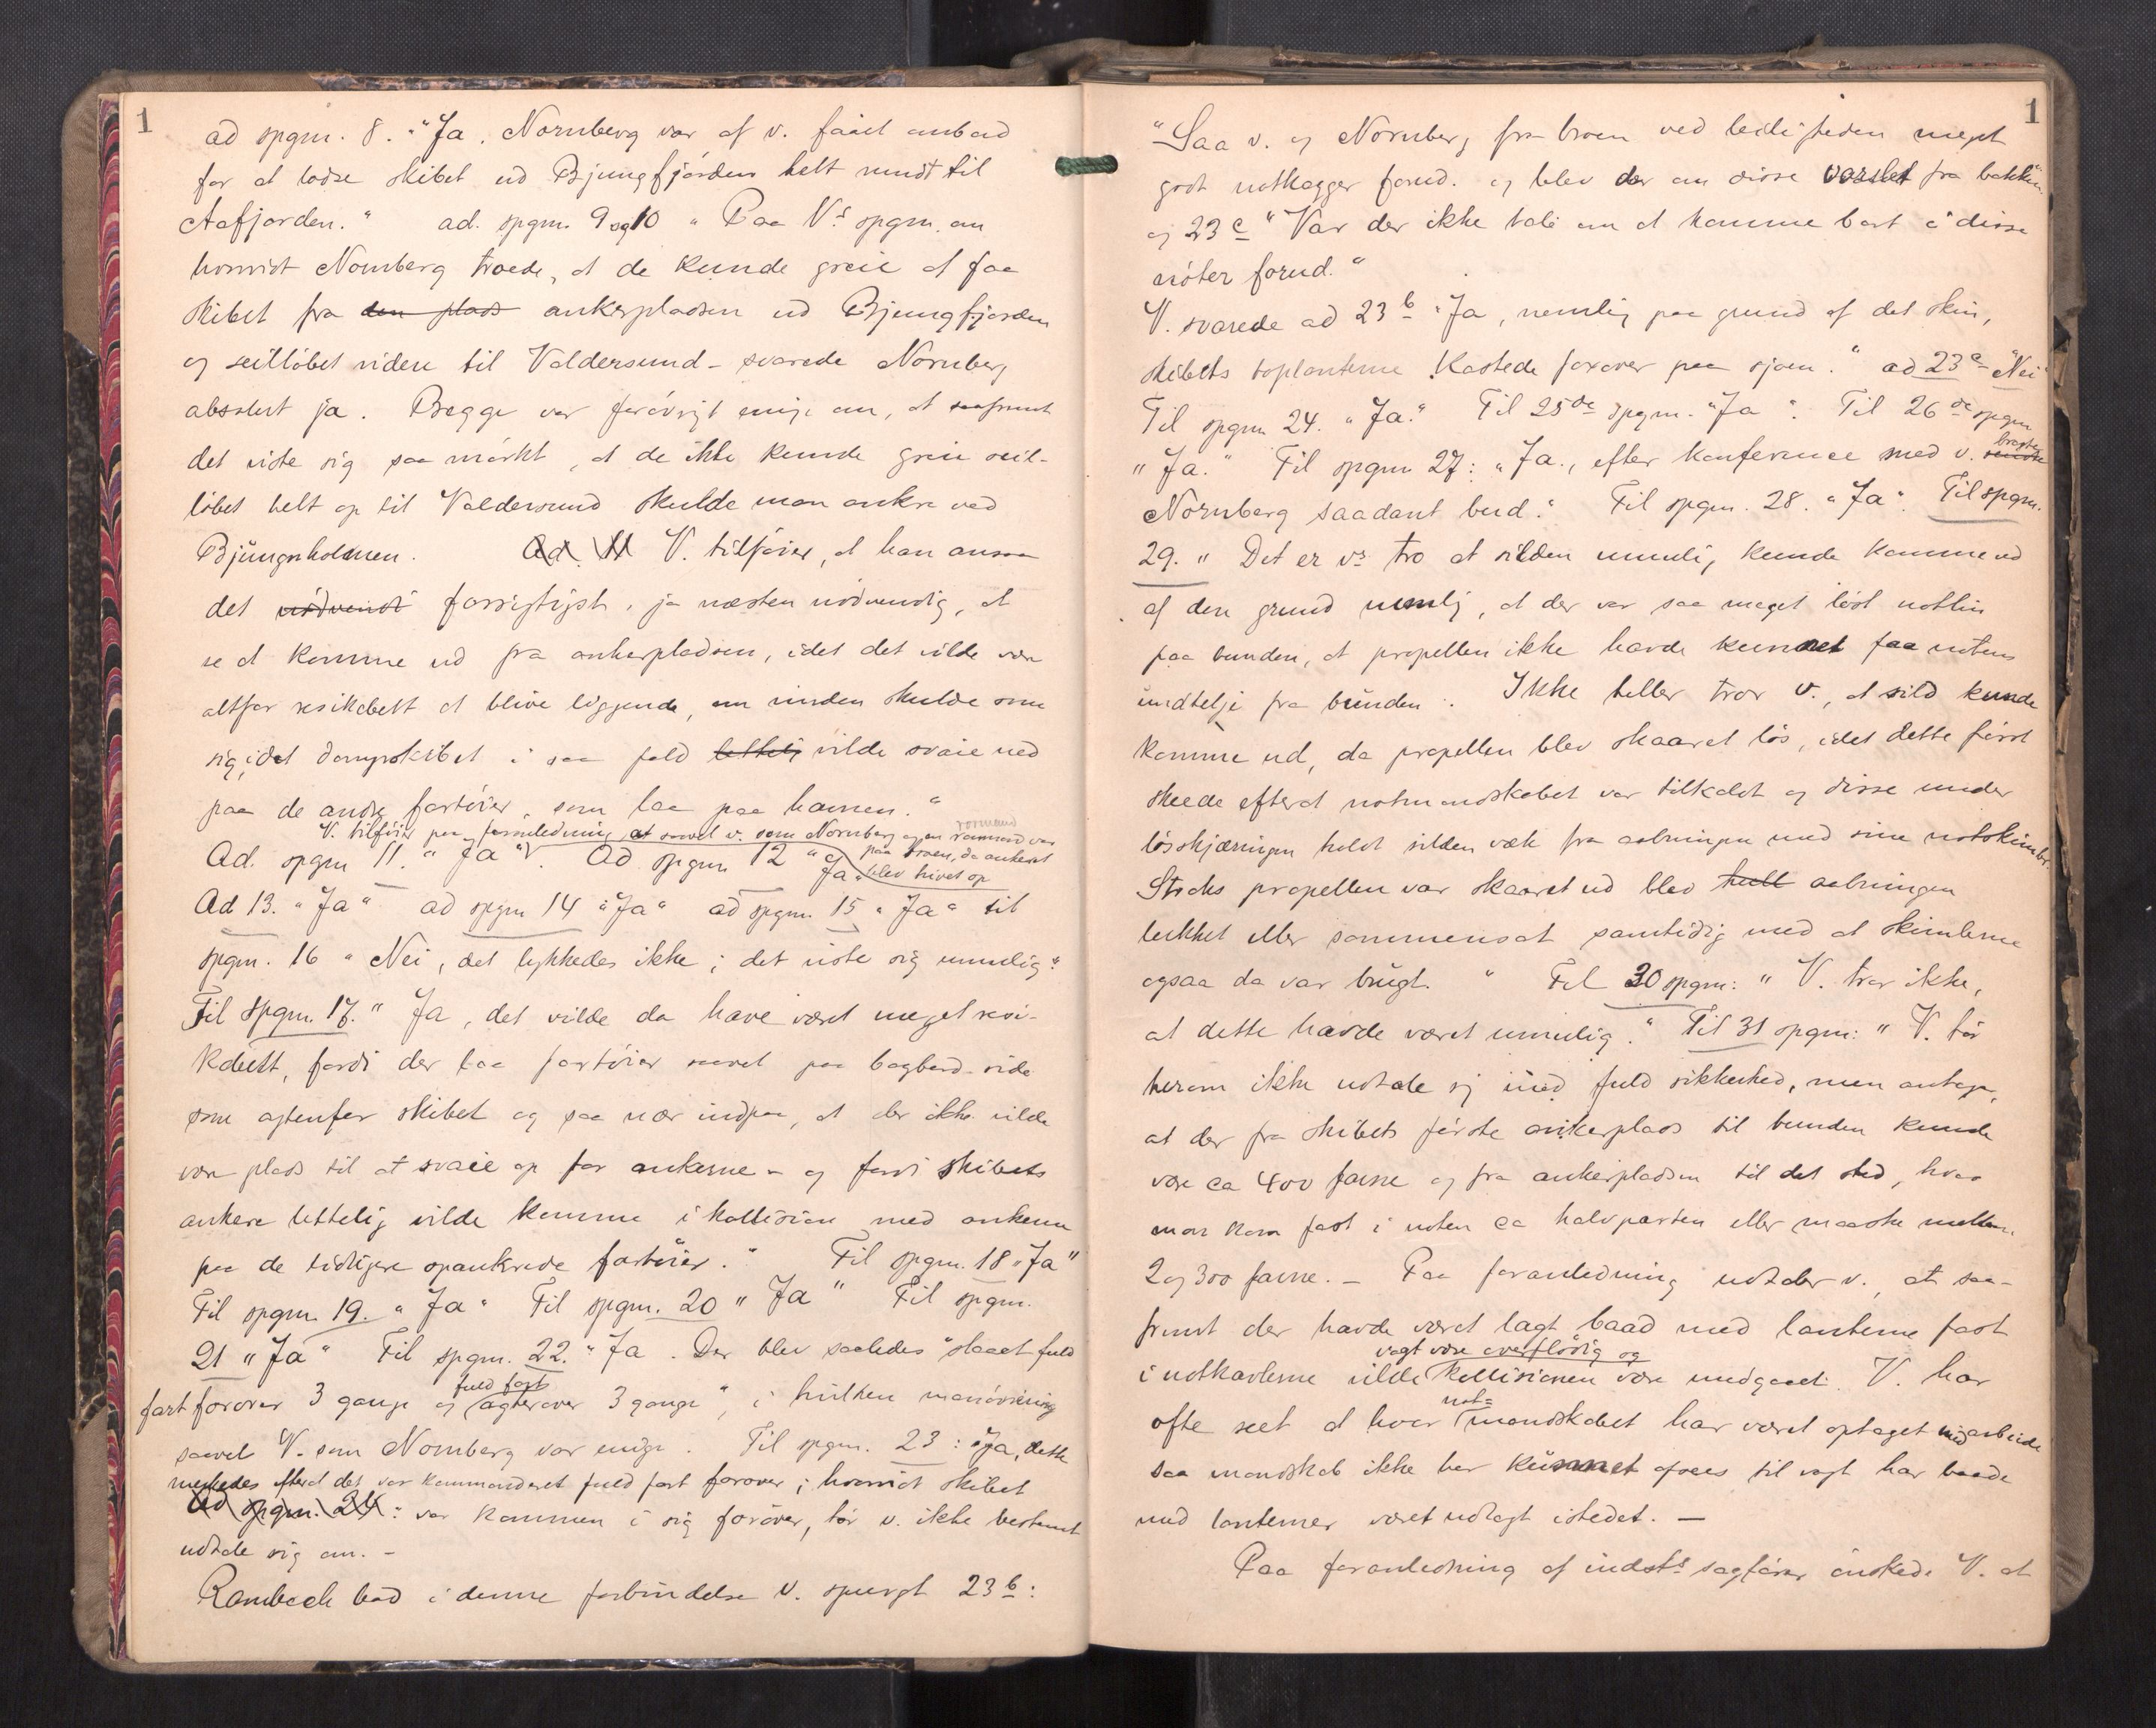 1
ad spgm. 8. "Ja. Nornberg var af v. faaet ombord
for at lodse skibet ud Bjungfjorden helt rundt til
Aafjorden." ad. spgm. 9 og 10 "Paa Vs spgm. om
hvorvidt Nornberg troede, at de kunde greie at faa
skibet fra den plads ankerpladsen ud Bjungfjorden
og seilløbet videre til Valdersund - svarede Nornberg
absolut ja. Begge var forøvrigt enige om, at saafremt
det viste sig saa mørkt, at de ikke kunde greie seil-
løbet helt op til Valdersund skulde man ankre ved
Bjungnholmen. Ad 11 V. tilføier, at han ansaa
det nødvendi forsigtigst, ja næsten nødvendig, at
se at komme ud fra ankerpladsen, idet det vilde være
altfor resikabelt at blive liggende, om vinden skulde snu
sig, idet dampskibet i saa fald lettelig vilde svaie ned
paa de andre fartøier, som laa paa havnen."
V. tilføier paa foranledning at saavel v. som Nornberg og en rormand var
paa broen, da ankeret
blev hivet op
Ad. spgm 11. "Ja" Ad spgm 12 "Ja"
Ad 13. "Ja" ad spgm 14 "Ja" ad spgm. 15 "Ja" til
spgm. 16 "Nei, det lykkedes ikke; det viste sig umulig".
Til spgm. 17. "Ja, det vilde da have været meget resi-
kabelt, fordi der laa fartøier saavel paa bagbord-side
som agtenfor skibet og saa nær indpaa, at der ikke vilde
være plads til at svaie op for ankerne - og fordi skibets
ankere lettelig vilde komme i kollision med ankerne
paa de tidligere opankrede fartøier." Til spgm. 18 "Ja"
Til spgm. 19. "Ja" Til spgm. 20 "Ja" Til spgm.
21 "Ja" Til spgm. 22. "Ja. Der blev saaledes "slaaet fuld
fart forover 3 gange og fuld fart agterover 3 gange", i hvilken manøvrering
saavel V. som Nornberg var enige. Til spgm. 23: "Ja, dette
merkedes efterat det var kommanderet fuld fart forover; hvorvidt skibet
Ad spgm. 24: var kommen i sig forover, tør v. ikke bestemt
udtale sig om. -
Rambech bad i denne forbindelse v. spurgt 23 b:
1
"Saa v. og Nornberg fra broen ved leiligheden meget
godt notkagger forud. og blev der om disse varslet fra bakken
og 23 c "Var der ikke tale om at komme bort i disse
nøter forud."
V. svarede ad 23 b "Ja, nemlig paa grund af det skin,
skibets toplanterne kastede forover paa sjøen." ad 23 c "Nei"
Til spgm 24. "Ja." Til 25de spgm. "Ja". Til 26de spgm
"Ja." Til spgm 27: "Ja., efter konference med v. sendte bragte
Nornberg saadant bud." Til spgm. 28. "Ja". Til spgm.
29. "Det er vs tro at silden umuli, kunde komme ud
af den grund nemlig, at der var saa meget løst notlin
paa bunden, at propellen ikke havde kunnet faa notens
undtelje fra bunden. Ikke heller tror v., at sild kunde
komme ud, da propellen blev skaaret løs, idet dette først
skeede efterat notmandskabet var tilkaldt og disse under
løsskjæringen holdt silden væk fra aabningen med sine notskimler.
Straks propellen var skaaret ud blev hull aabningen
lukket eller sammensat samtidig med at skimlerne
ogsaa da var brugt." Til 30 spgm: "V. tror ikke,
at dette havde været umulig." Til 31 spgm: "V. tør
herom ikke udtale sig med fuld sikkerhed, men antager,
at der fra skibets første ankerplads til bunden kunde
være ca 400 favne og fra ankerpladsen til det sted, hvor
man kom fast i noten ca halvparten eller maaske mellem
2 og 300 favne. - Paa foranledning udtaler v., at saa-
fremt der havde været lagt baad med lanterne fast
i notkavlerne vilde vagt være overflødig og kollisionen være undgaaet. V. har
ofte seet at hvor not= mandskabet har været optaget med arbeide
saa mandskab ikke har kunnet afsees til vagt har baade
med lanterner været udlagt istedet. -
Paa foranledning af indsts sagfører ønskede V. at